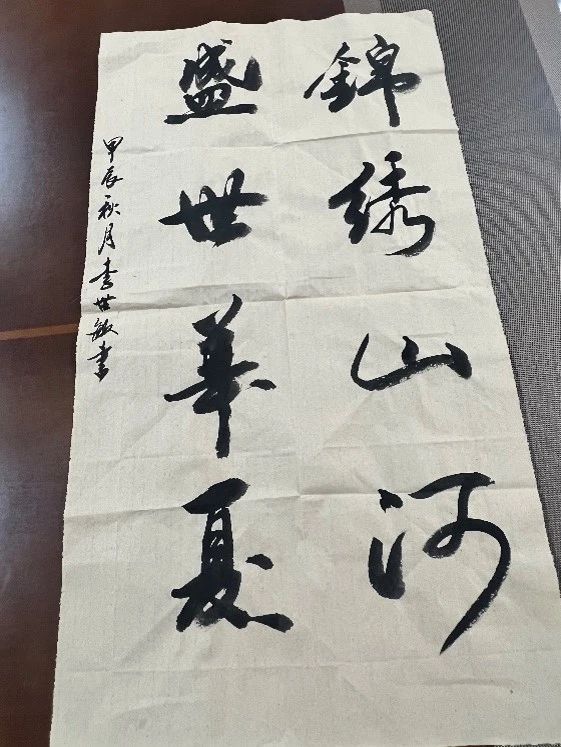 錦绣山河
盛世華夏
甲辰秋月李世敏書